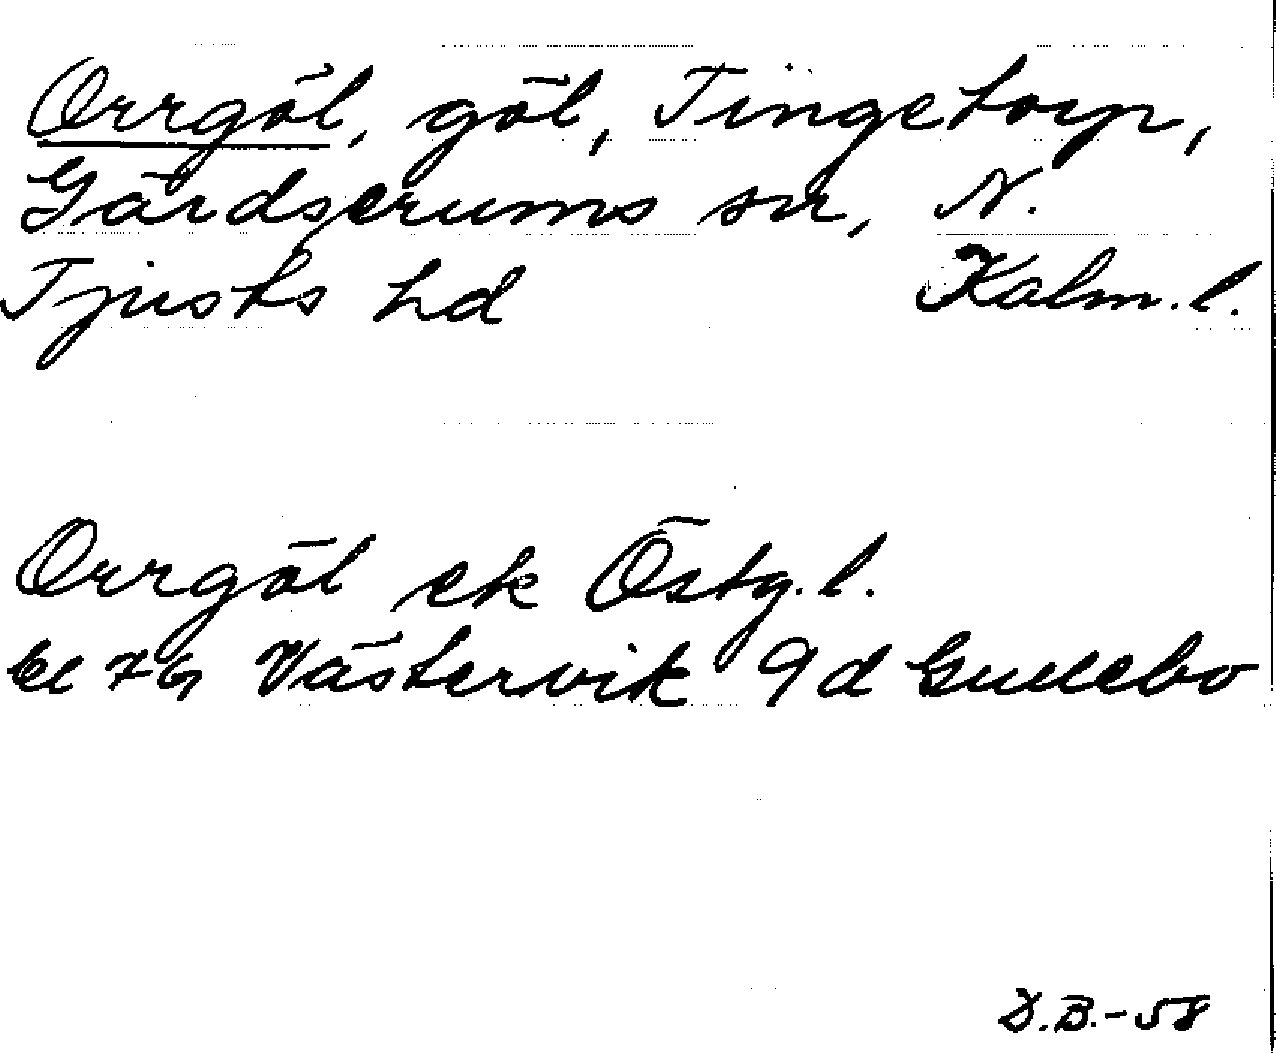 Orrgöl, göl, Tingetorp,
Gärdserums sn, N.
Tjusts hd Kalm. l.
Orrgöl ek Östg. l.
bl 76 Västervik 9d Gullebo
D.B.-58